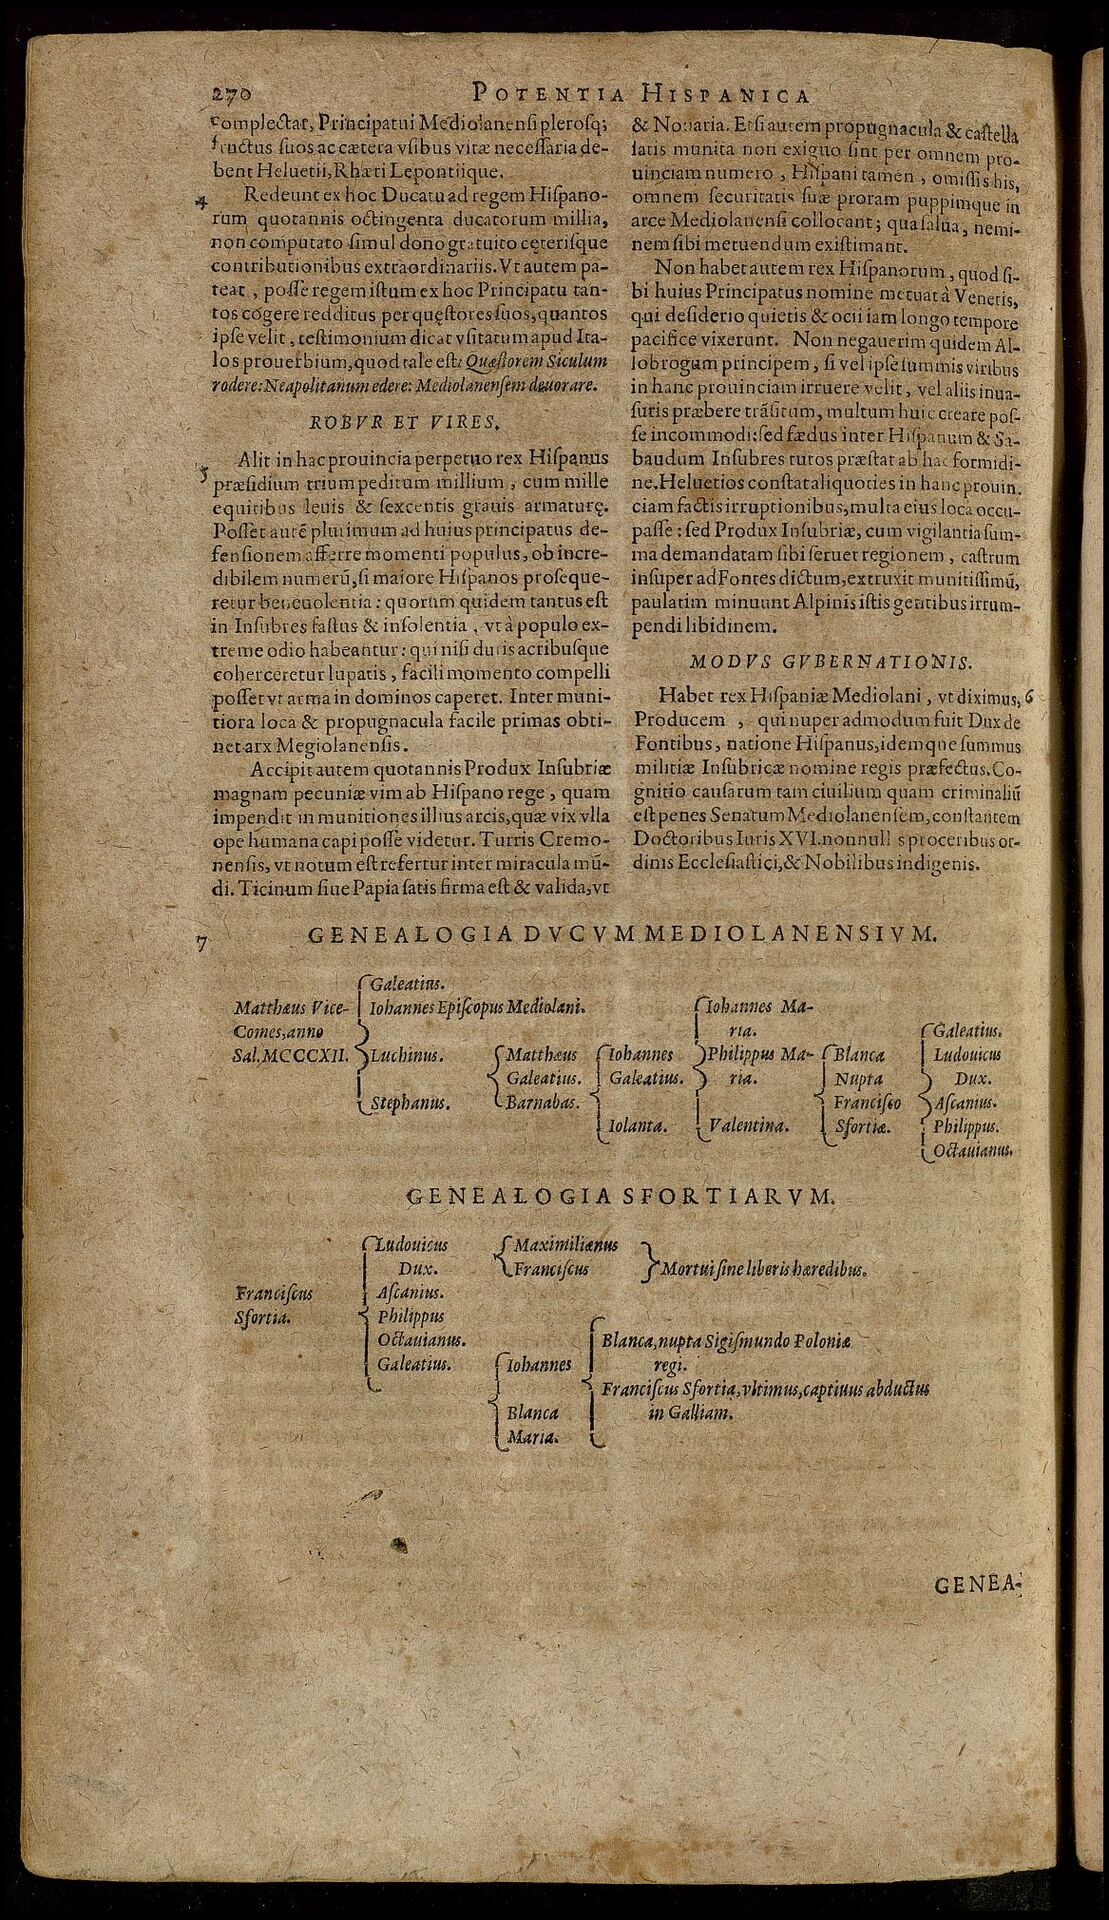 270 POTENTIA HISPANICA
complectar, Principatui Mediolanensi plerosq;
fructus suos ac cætera vsibus vitæ necessaria de-
bent Heluetii, Rhæti Lepontiique.
4 Redeunt ex hoc Ducatu ad regem Hispano-
rum quotannis octingenta ducatorum millia,
non computato simul dono gratuito cęterisque
contributionibus extraordinariis. Vt autem pa-
teat, posse regem istum ex hoc Principatu tan-
tos cogere redditus per quęstores suos, quantos
ipse velit, testimonium dicat vsitatum apud Ita-
los prouerbium, quod tale est: Quæstorem Siculum
rodere: Neapolitanum edere: Mediolanensem deuorare.
ROBVR ET VIRES.
5 Alit in hac prouincia perpetuo rex Hispanus
præsidium trium peditum millium, cum mille
equitibus leuis & sexcentis grauis armaturę.
Posset autē plurimum ad huius principatus de-
fensionem afferre momenti populus, ob incre-
dibilem numerū, si maiore Hispanos proseque-
retur beneuolentia: quorum quidem tantus est
in Insubres fastus & insolentia, vt à populo ex-
treme odio habeantur: qui nisi duris acribusque
coherceretur lupatis, facili momento compelli
posset vt arma in dominos caperet. Inter muni-
tiora loca & propugnacula facile primas obti-
net arx Megiolanensis.
Accipit autem quotannis Produx Insubriæ
magnam pecuniæ vim ab Hispano rege, quam
impendit in munitiones illius arcis, quæ vix vlla
ope humana capi posse videtur. Turris Cremo-
nensis, vt notum est refertur inter miracula mū-
di. Ticinum siue Papia satis firma est & valida, vt
& Nouaria. Etsi autem propugnacula & castella
satis munita non exiguo sint per omnem pro-
uinciam numero, Hispani tamen, omissis his,
omnem securitatis suæ proram puppimque in
arce Mediolanensi collocant; qua salua, nemi-
nem sibi metuendum existimant.
Non habet autem rex Hispanorum, quod si-
bi huius Principatus nomine metuat à Venetis,
qui desiderio quietis & ocii iam longo tempore
pacifice vixerunt. Non negauerim quidem Al-
lobrogum principem, si vel ipse summis viribus
in hanc prouinciam irruere velit, vel aliis inua-
suris præbere trāsitum, multum huic creare pos-
se incommodi: sed fædus inter Hispanum & Sa-
baudum Insubres tutos præstat ab hac formidi-
ne. Heluetios constat aliquoties in hanc prouin-
ciam factis irruptionibus, multa eius loca occu-
passe: sed Produx Insubriæ, cum vigilantia sum-
ma demandatam sibi seruet regionem, castrum
insuper ad Fontes dictum, extruxit munitissimū,
paulatim minuunt Alpinis istis gentibus irrum-
pendi libidinem.
MODVS GVBERNATIONIS.
Habet rex Hispaniæ Mediolani, vt diximus, 6
Producem, qui nuper admodum fuit Dux de
Fontibus, natione Hispanus, idemque summus
militiæ Insubricæ nomine regis præfectus. Co-
gnitio causarum tam ciuilium quam criminaliū
est penes Senatum Mediolanensem, constantem
Doctoribus Iuris XVI. nonnull s proceribus or-
dinis Ecclesiastici, & Nobilibus indigenis.
7 GENEALOGIA DVCVM MEDIOLANENSIVM.
Matthæus Vice-
Comes, anno
Sal. MCCCXII.
Galeatius.
Iohannes Episcopus Mediolani.
Luchinus.
Stephanus.
Matthæus
Galeatius.
Barnabas.
Iohannes
Galeatius.
Iolanta.
Iohannes Ma-
ria.
Philippus Ma-
ria.
Valentina.
Blanca
Nupta
Francisco
Sfortiæ.
Galeatius.
Ludouicus
Dux.
Ascanius.
Philippus.
Octauianus.
GENEALOGIA SFORTIARVM.
Franciscus
Sfortia.
Ludouicus
Dux.
Ascanius.
Philippus
Octauianus.
Galeatius.
Maximilianus
Franciscus
Mortui sine liberis hæredibus.
Iohannes
Blanca
Maria.
Blanca, nupta Sigismundo Poloniæ
regi.
Franciscus Sfortia, vltimus, captiuus abductus
in Galliam.
GENEA-